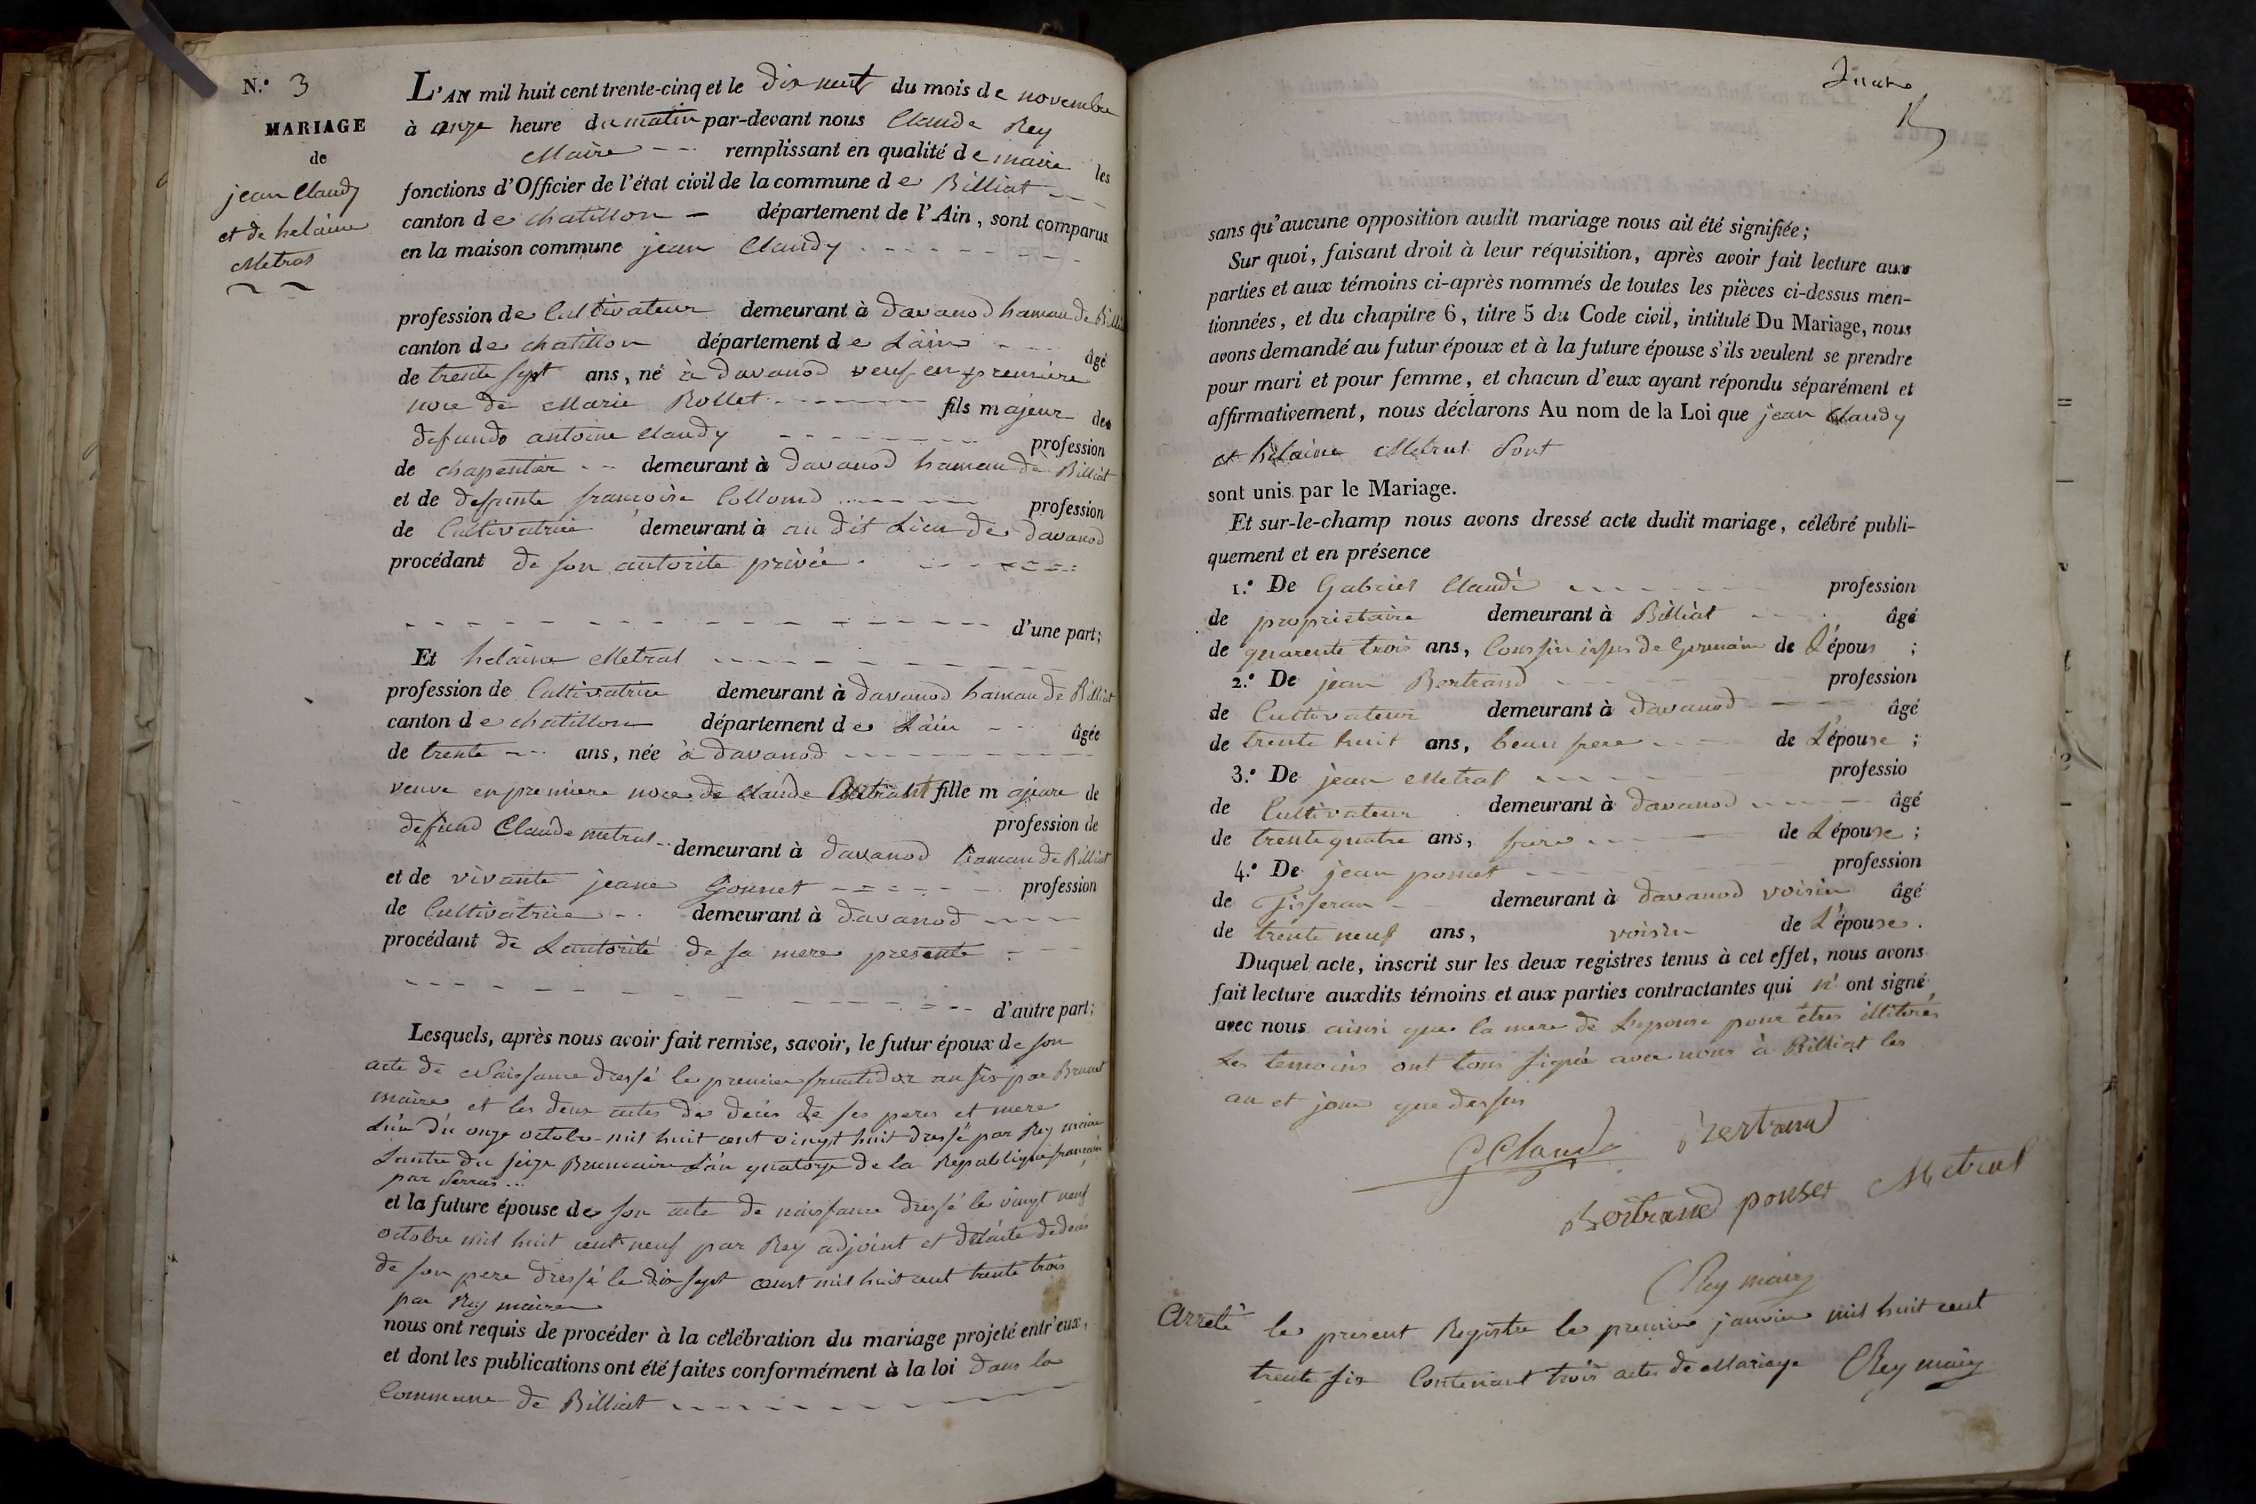 N.° 3
MARIAGE
de
jean Claudy
et de helaine
Metral
L'AN mil huit cent trente-cinq et le dix neuf du mois de novembre
à onze heure du matin par-devant nous Claude Rey
Maire remplissant en qualité de maire les
fonctions d'Officier de l'état civil de la commune de Billiat
canton de chatillon département de l'Ain, sont comparus
en la maison commune jean Claudy
profession de Cultivateur demeurant à davanod hameau de Billiat
canton de chatillon département de Lain âgé
de trente sept ans, né à davanod veuf en premiere
noce de Marie Rollet fils majeur de
defunds antoine Claudy profession
de chapentier demeurant à davanod hameau de Billiat
et de deffunte francoise Collomd profession
de Cultivatrice demeurant à au dit Lieu de davanod
procédant de son autorite privée
d'une part;
Et helaine Metral
profession de Cultivatrice demeurant à davanod hameau de Billiat
canton de chatillon département de Lain âgée
de trente ans, née à davanod
veuve en premiere noce de Claude fille majeure de
deffund Claude metral profession de
demeurant à davanod hameau de Billiat
et de vivante jeane Gonnet profession
de Cultivatrice demeurant à davanod
procédant de Lautorité de sa mere presente
d'autre part;
Lesquels, après nous avoir fait remise, savoir, le futur époux de son
acte de Naissance dressé le premier fructidor an six par Brunet
maire et les deux actes de deces de ses peres et mere
Lun du onze octobre mil huit cent vingt huit dressé par Rey maire
Lautre du seize Brumaire Lan quatorze de la Republique francaise
par
et la future épouse de son acte de naissance dressé le vingt neuf
octobre mil huit cent neuf par Rey adjoint et de lacte de deces
de son pere dressé le dix sept aout mil huit cent trente trois
par Rey maire
nous ont requis de procéder à la célébration du mariage projeté entr'eux,
et dont les publications ont été faites conformément à la loi dans la
Commune de Billiat
quatre
sans qu'aucune opposition audit mariage nous ait été signifiée;
Sur quoi, faisant droit à leur réquisition, après avoir fait lecture aux
parties et aux témoins ci-après nommés de toutes les pièces ci-dessus men-
tionnées, et du chapitre 6, titre 5 du Code civil, intitulé Du Mariage, nous
avons demandé au futur époux et à la future épouse s'ils veulent se prendre
pour mari et pour femme, et chacun d'eux ayant répondu séparément et
affirmativement, nous déclarons Au nom de la Loi que jean Claudy
et hélaine Metral Sont
sont unis par le Mariage.
Et sur-le-champ nous avons dressé acte dudit mariage, célébré publi-
quement et en présence
1.° De Gabriel Claudé profession
de propriétaire demeurant à Billiat âgé
de quarente trois ans, Coussin issus de Germain de L'épous ;
2.° De jean Bertrand profession
de Cultivateur demeurant à davanod âgé
de trente huit ans, beau frere de L'épouse ;
3.° De jean Metral professio
de Cultivateur demeurant à davanod âgé
de trente quatre ans, frere de L'épouse ;
4.° De jean ponset profession
de Tisseran demeurant à davanod voisin âgé
de trente neuf ans, voisin de L'épouse.
Duquel acte, inscrit sur les deux registres tenus à cet effet, nous avons
fait lecture auxdits témoins et aux parties contractantes qui n' ont signé
avec nous ainsi que la mere de Lepouse pour êtres illiterés
Les temoins ont tous signée avec nous à Billiat les
an et jour que dessus
GClaudé Bertrand
Bertrand ponset Metral
CRey maire
Arreté le present Registre le premier janvier mil huit cent
trente six Contenant trois actes de Mariage CRey maire